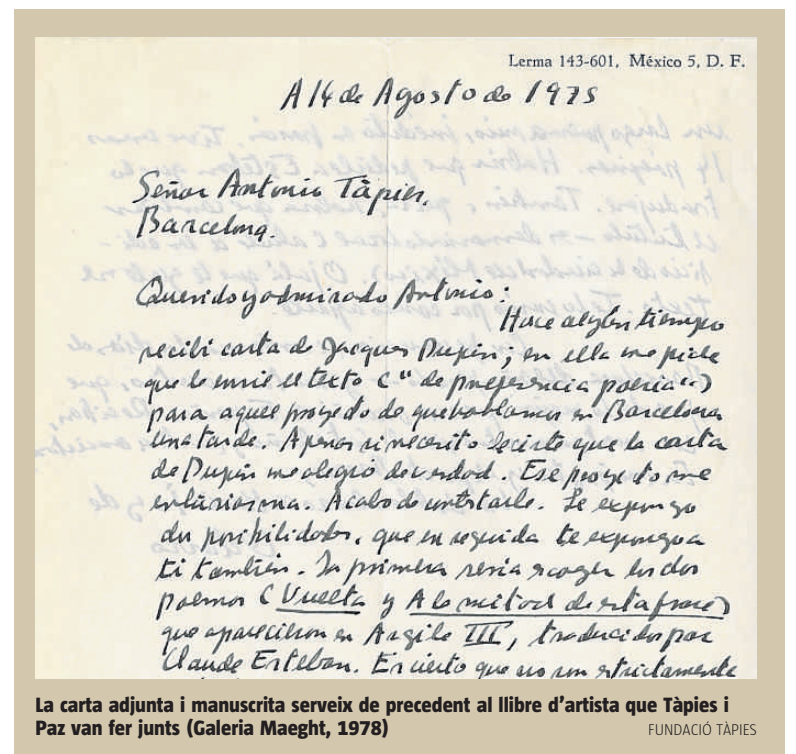 Lerma 143-601, México 5, D. F.
A 14 de Agosto de 1975
Señor Antonio Tàpies,
Barcelona.
Querido y admirado Antonio:
Hace algún tiempo
recibí carta de Jacques Dupin; en ella me pide
que le envíe el texto ("de preferencia poesía")
para aquel proyecto de que hablamos en Barcelona
una tarde. Apenas si necesito decirte que la carta
de Dupin me alegró de verdad. Ese proyecto me
entusiasma. Acabo de contestarle. Le expongo
dos posibilidades, que en seguida te expongo a
ti también. La primera sería recoger los dos
poemas (Vuelta y A la mitad de esta frase)
que aparecieron en Argile III, traducidos por
Claude Esteban. Es cierto que no son estrictamente
La carta adjunta i manuscrita serveix de precedent al llibre d'artista que Tàpies i
Paz van fer junts (Galeria Maeght, 1978)
FUNDACIÓ TÀPIES